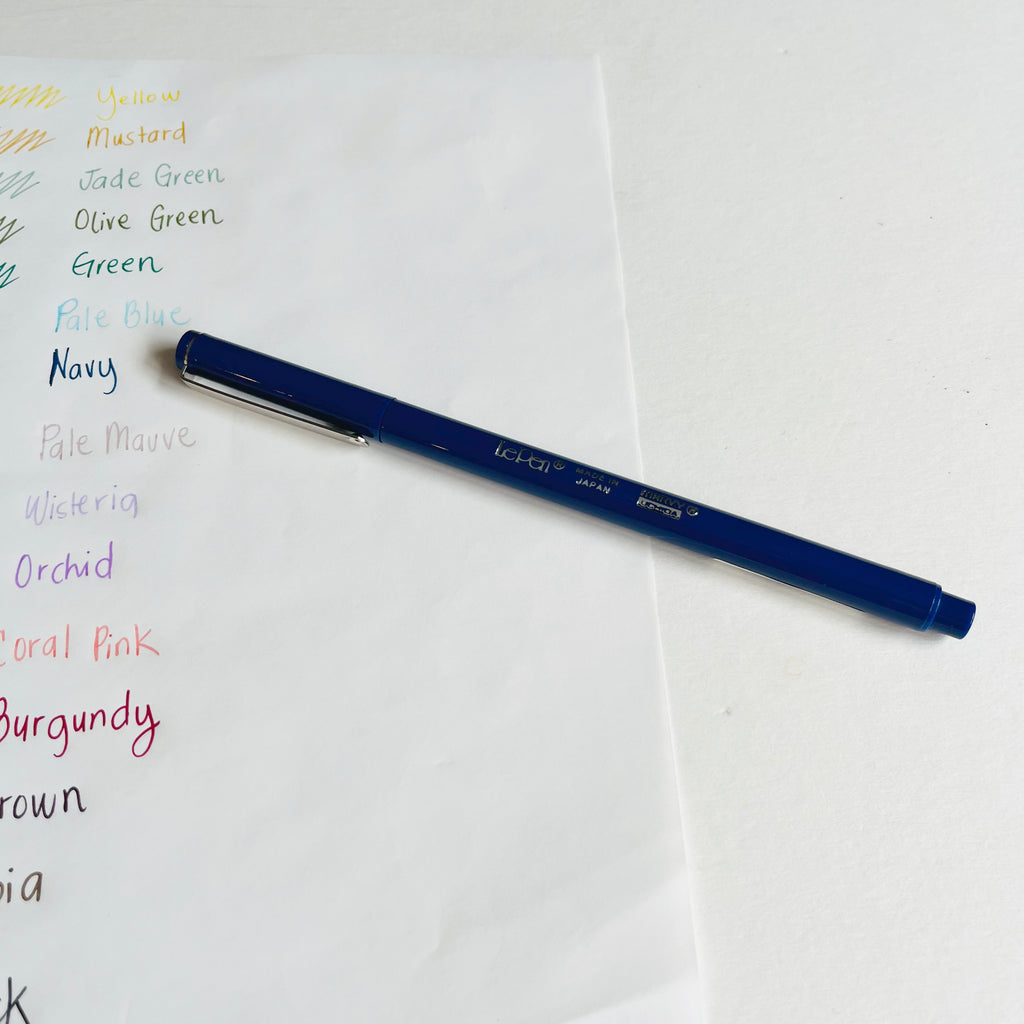 Yellow
Mustard
Jade Green
Olive Green
Green
Pale Blue
Navy
Pale Mauve
Wisteria
Orchid
Coral Pink
Burgundy
rown
ia
k
LePen®
MADE IN
JAPAN
MARVY®
UCHIDA